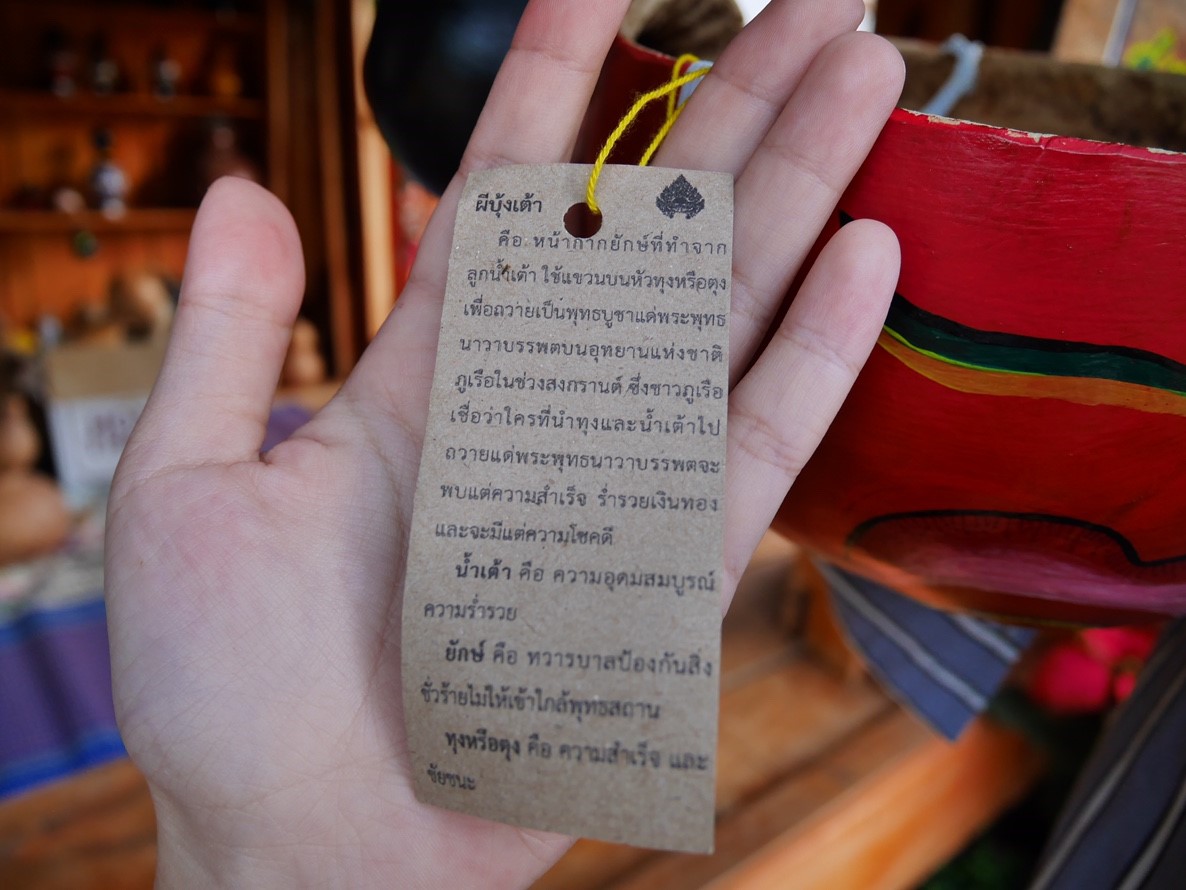 ผีบุ้งเต้า
คือ หน้ากากยักษ์ที่ทำจาก
ลูกน้ำเต้า ใช้แขวนบนหัวทุงหรือตุง
เพื่อถวายเป็นพุทธบูชาแด่พระพุทธ
นาวาบรรพตบนอุทยานแห่งชาติ
ภูเรือในช่วงสงกรานต์ ซึ่งชาวภูเรือ
เชื่อว่าใครที่นำทุงและน้ำเต้าไป
ถวายแด่พระพุทธนาวาบรรพตจะ
พบแต่ความสำเร็จ ร่ำรวยเงินทอง
และจะมีแต่ความโชคดี
น้ำเต้า คือ ความอุดมสมบูรณ์
ความร่ำรวย
ยักษ์ คือ ทวารบาลป้องกันสิ่ง
ชั่วร้ายไม่ให้เข้าใกล้พุทธสถาน
ทุงหรือตุง คือ ความสำเร็จ และ
ชัยชนะ